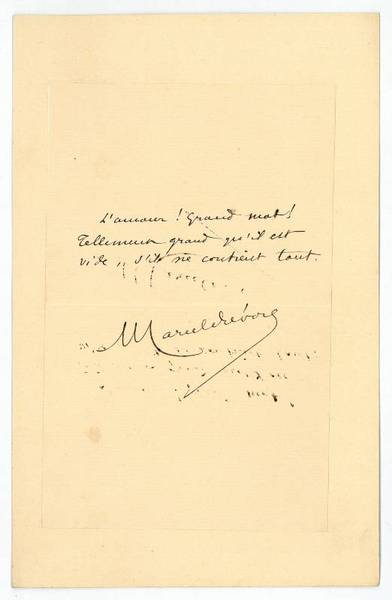 L'amour ! Grand mot !
Tellement grand qu'il est
vide, s'il ne contient tout.